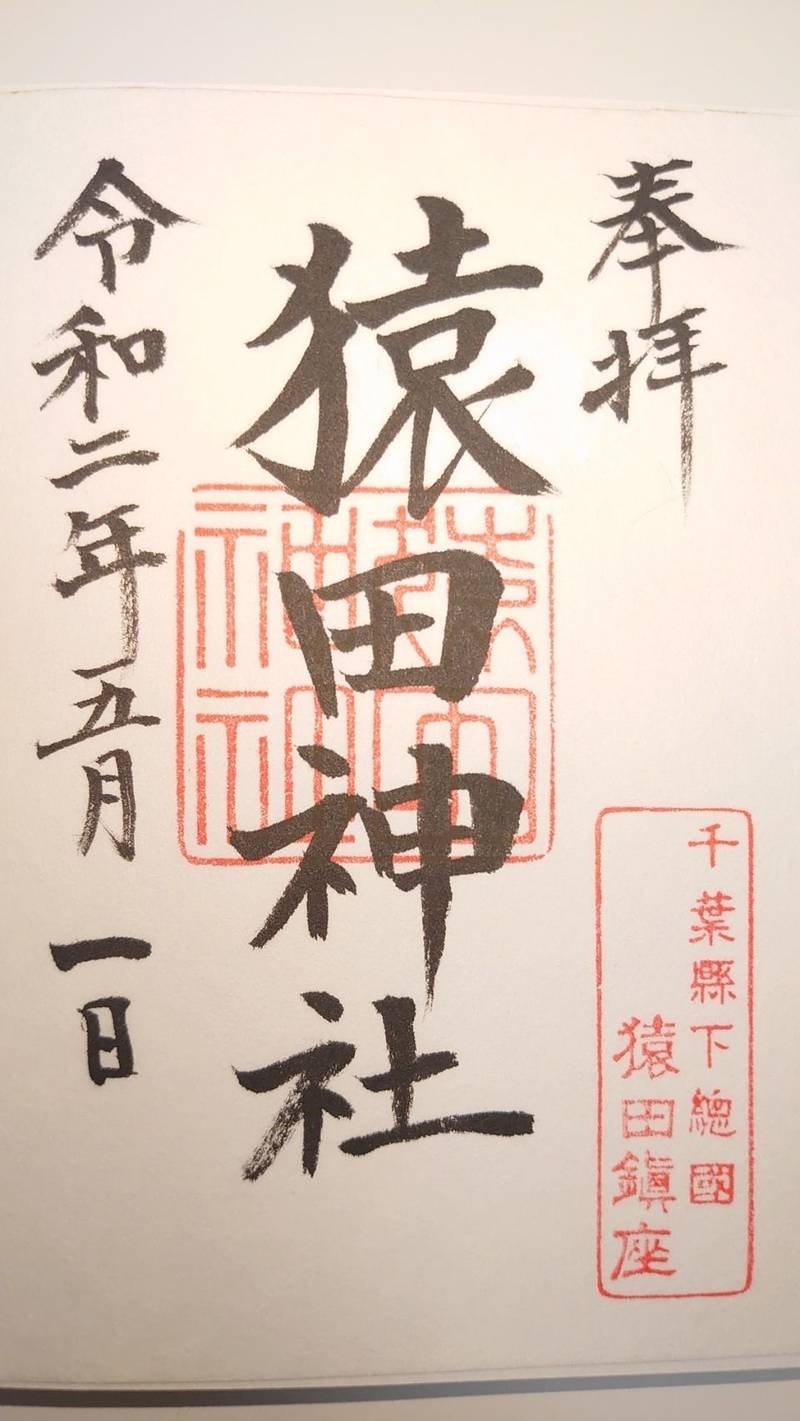 奉拝
千葉縣下總國
猿田鎮座
猿田神社
猿田神社
令和二年五月一日